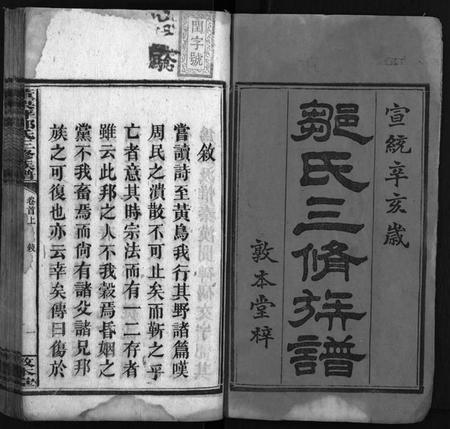 宣統辛亥歲
鄒氏三脩族譜
敦本堂梓
閏字號
敘
嘗讀詩至黃鳥我行其野諸篇嘆
周民之潰散不可止矣而靳之乎
亡者意其時宗法而有一二存者
雖云此邦之人不我穀焉昏姻之
黨不我畜焉而尙有諸父諸兄邦
族之可復也亦云幸矣傳曰傷於
卷首上
敘
一